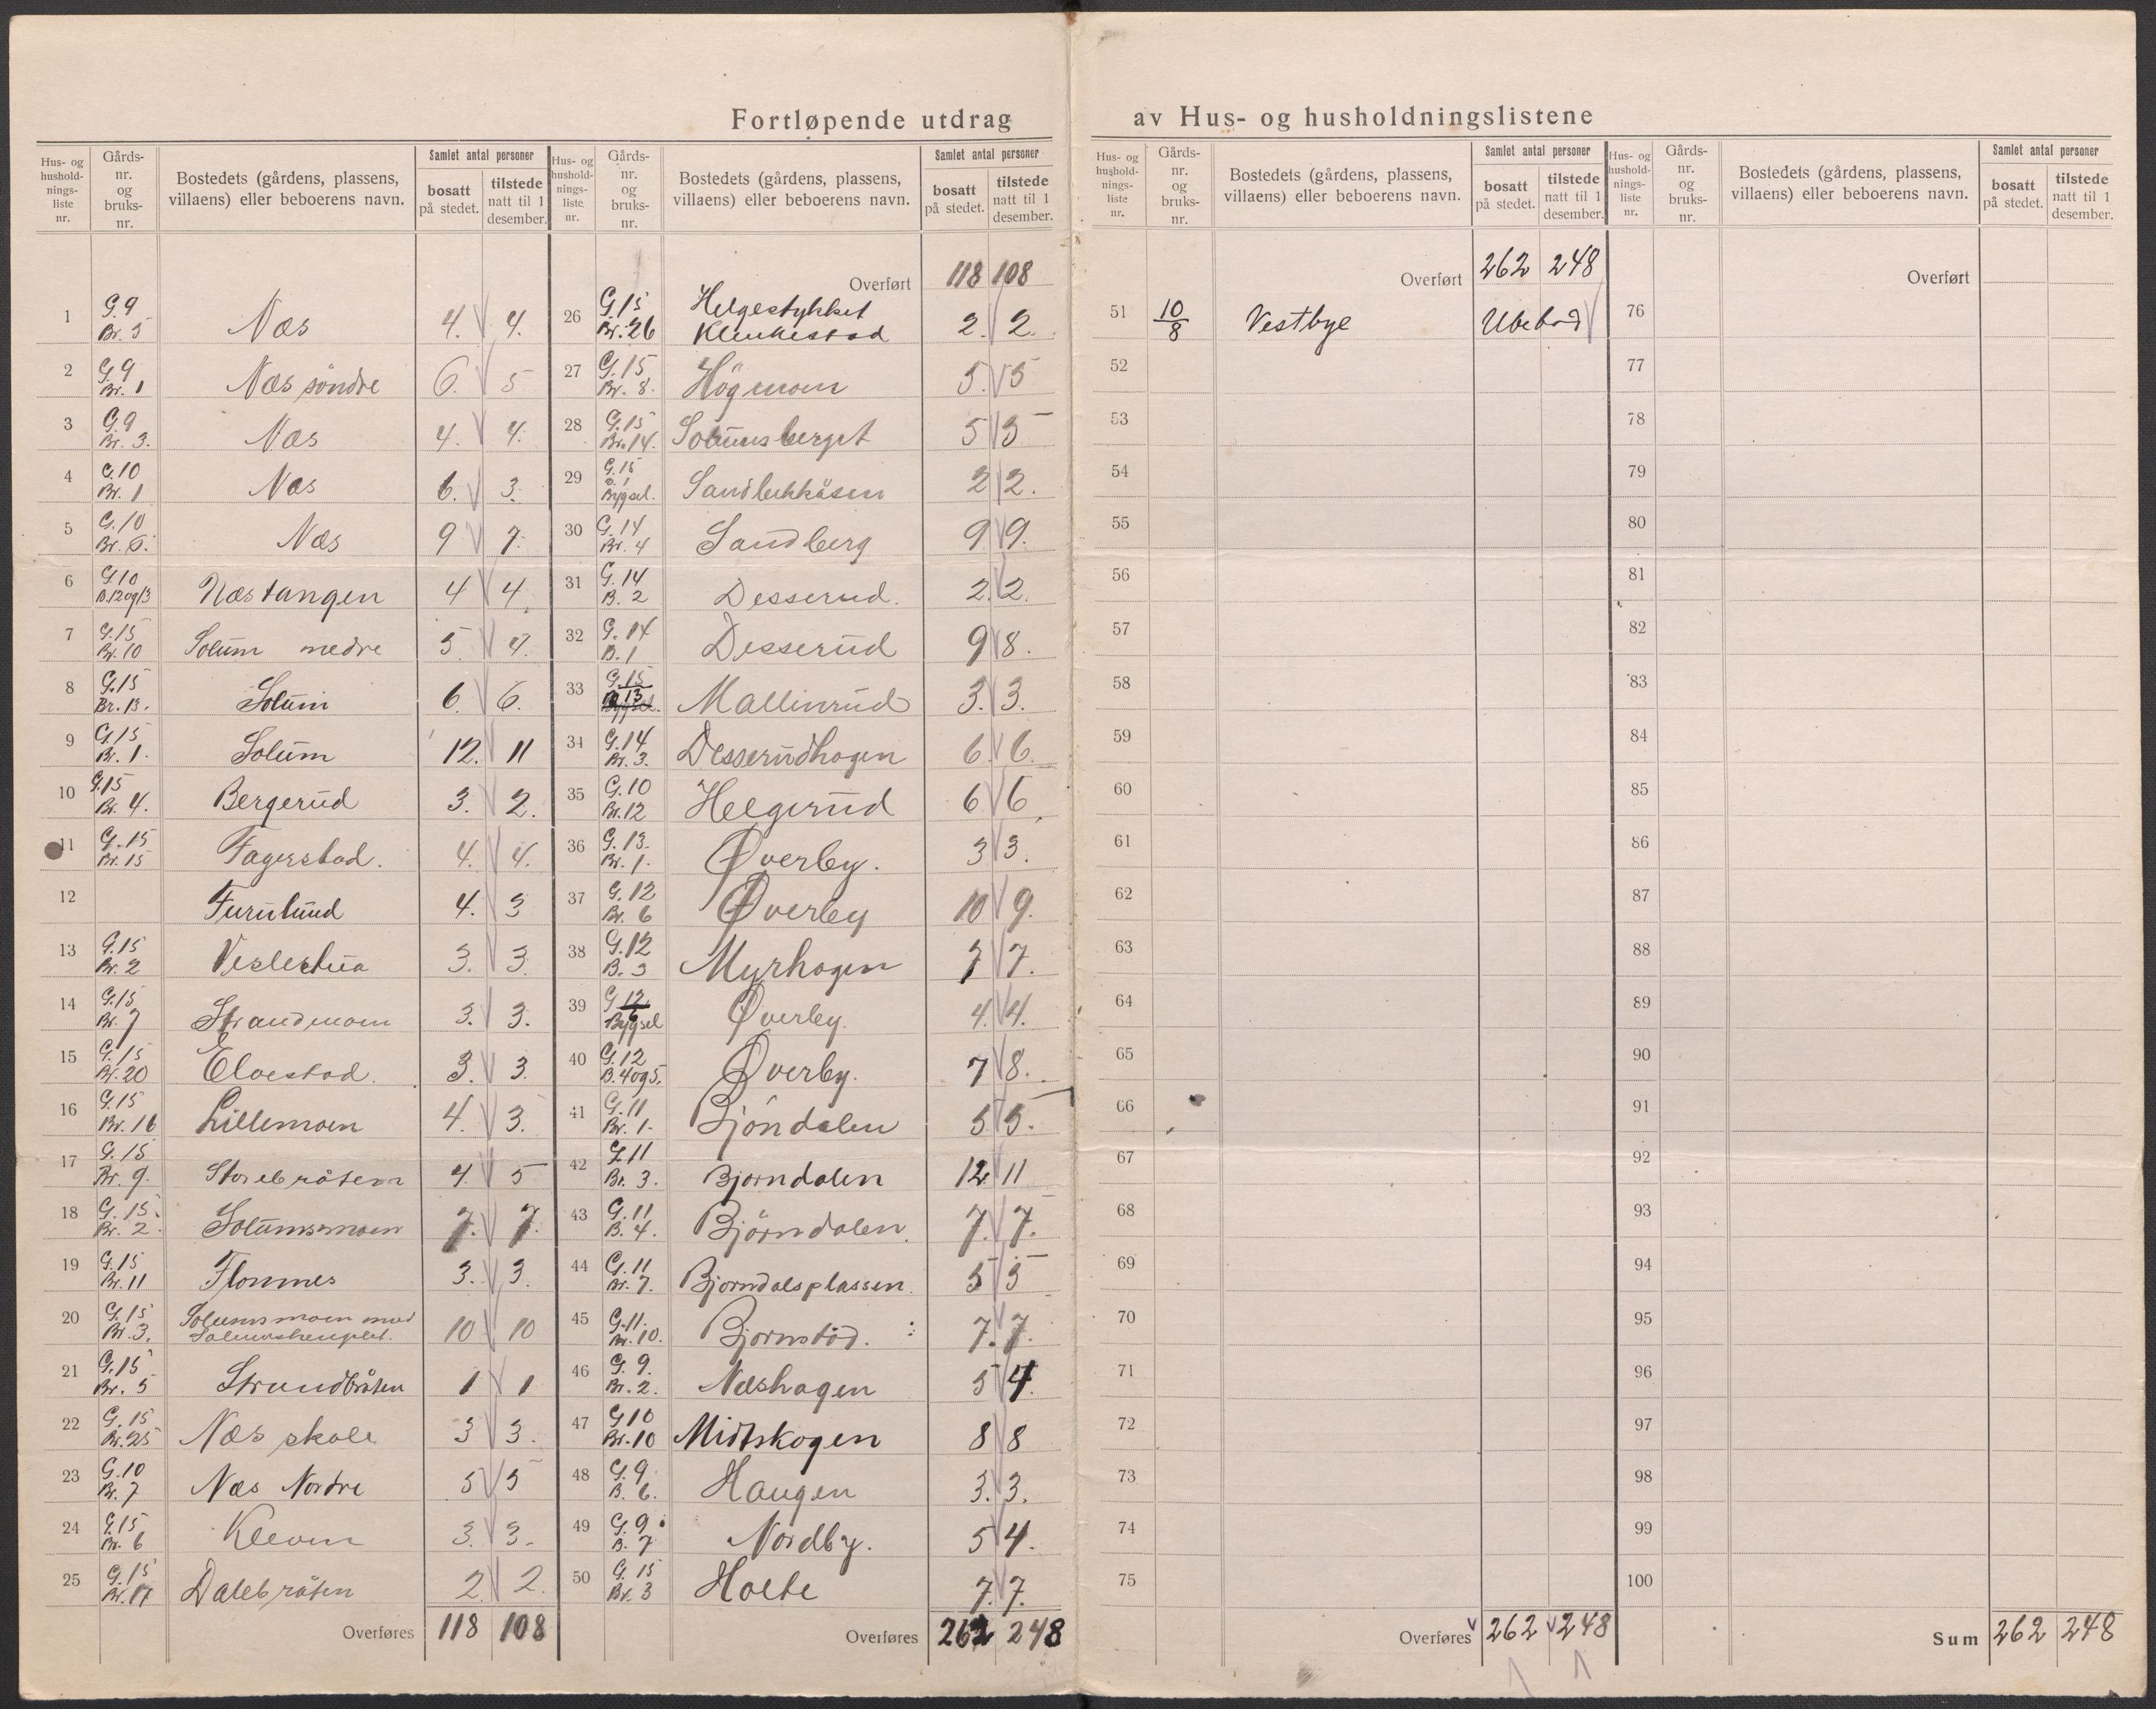 Fortløpende utdrag av Hus- og husholdningslistene
Hus- og hushold-nings-liste nr. | Gårds-nr. og bruks-nr. | Bostedets (gårdens, plassens, villaens) eller beboerens navn. | Samlet antal personer | bosatt på stedet. | tilstede natt til 1 desember.
1 G.9 Br.5 Næs 4. 4.
2 G.9 Br.1 Næs söndre 6. 5
3 G.9 Br.3. Næs 4. 4.
4 G.10 Br.1 Næs 6. 3.
5 G.10 Br.6. Næs 9 7.
6 G.10 B.12og13 Næstangen 4 4.
7 G.15 Br.10 Solum nedre 5 4.
8 G.15 Br.13. Solum 6. 6.
9 G.15 Br.1. Solum 12. 11
10 G.15 Br.4. Bergerud 3. 2.
11 G.15 Br.15 Fagerstad. 4. 4.
12 Furulund 4. 3
13 G.15 Br.2 Veslestua 3. 3.
14 G.15 Br.7 Strandmoen 3. 3.
15 G.15 Br.20 Elvestad. 3. 3.
16 G.15 Br.16 Lillemoen 4. 3.
17 G.15 Br.9. Storebråten 4. 5
18 G.15. Br.2. Solumsmoen 7. 7.
19 G.15 Br.11 Flomnes 3. 3.
20 G.15 Br.3. Solumsmoen med 10 10
21 G.15 Br.5 Strandbråten 1 1
22 G.15 Br.25 Næs skole 3 3.
23 G.10 Br.7 Næs Nordre 5 5
24 G.15 Br.6 Kleven 3. 3.
25 G.15 Br.17 Dalebråten 2. 2.
Overføres 118 108
Overført 118 108
26 G.15 Br.26 Helgestykket
Klenkestad 2. 2.
27 G.15 Br.8. Högmoen 5. 5
28 G.15 Br.14. Solumsberget 5 5
29 G.15 Bygsel. Sandbekkåsen 2 2.
30 G.14 Br.4 Sandberg 9 9.
31 G.14 B.2 Desserud. 2. 2.
32 G.14 B.1 Desserud 9 8.
33 G.15 13 Bygsel. Mallinrud 3. 3.
34 G.14 Br.3. Desserudhagen 6. 6.
35 G.10 Br.12 Helgerud 6 6
36 G.13. Br.1. Øverby. 3 3.
37 G.12 Br.6 Øverby 10 9.
38 G.12 B.3 Myrhagen 7 7.
39 G 12 Bygsel Øverby. 4. 4.
40 G.12 B.4og5. Øverby. 7 8.
41 G.11 Br.1. Bjöndalen 5 5.
42 G.11 Br.3. Bjorndalen 12 11
43 G.11 B.4. Björndalen. 7. 7.
44 G.11 Br.7. Bjorndalsplassen. 5 5
45 G.11. Br.10. Bjornstad. 7. 7.
46 G.9. Br.2. Næshagen 5 4.
47 G.10 Br.10 Midtskogen 8 8
48 G.9 B.6. Haugen 3. 3.
49 G.9. B.7 Nordby. 5 4.
50 G.15 Br.3 Holte 7. 7.
Overføres 262 248
Hus- og hushold-nings-liste nr. | Gårds-nr. og bruks-nr. | Bostedets (gårdens, plassens, villaens) eller beboerens navn. | Samlet antal personer | bosatt på stedet. | tilstede natt til 1 desember.
Overført 262 248
51 10/8 Vestbye Ubebod
52
53
54
55
56
57
58
59
60
61
62
63
64
65
66
67
68
69
70
71
72
73
74
75
Overføres 262 248
Overført
76
77
78
79
80
81
82
83
84
85
86
87
88
89
90
91
92
93
94
95
96
97
98
99
100
Sum 262 248